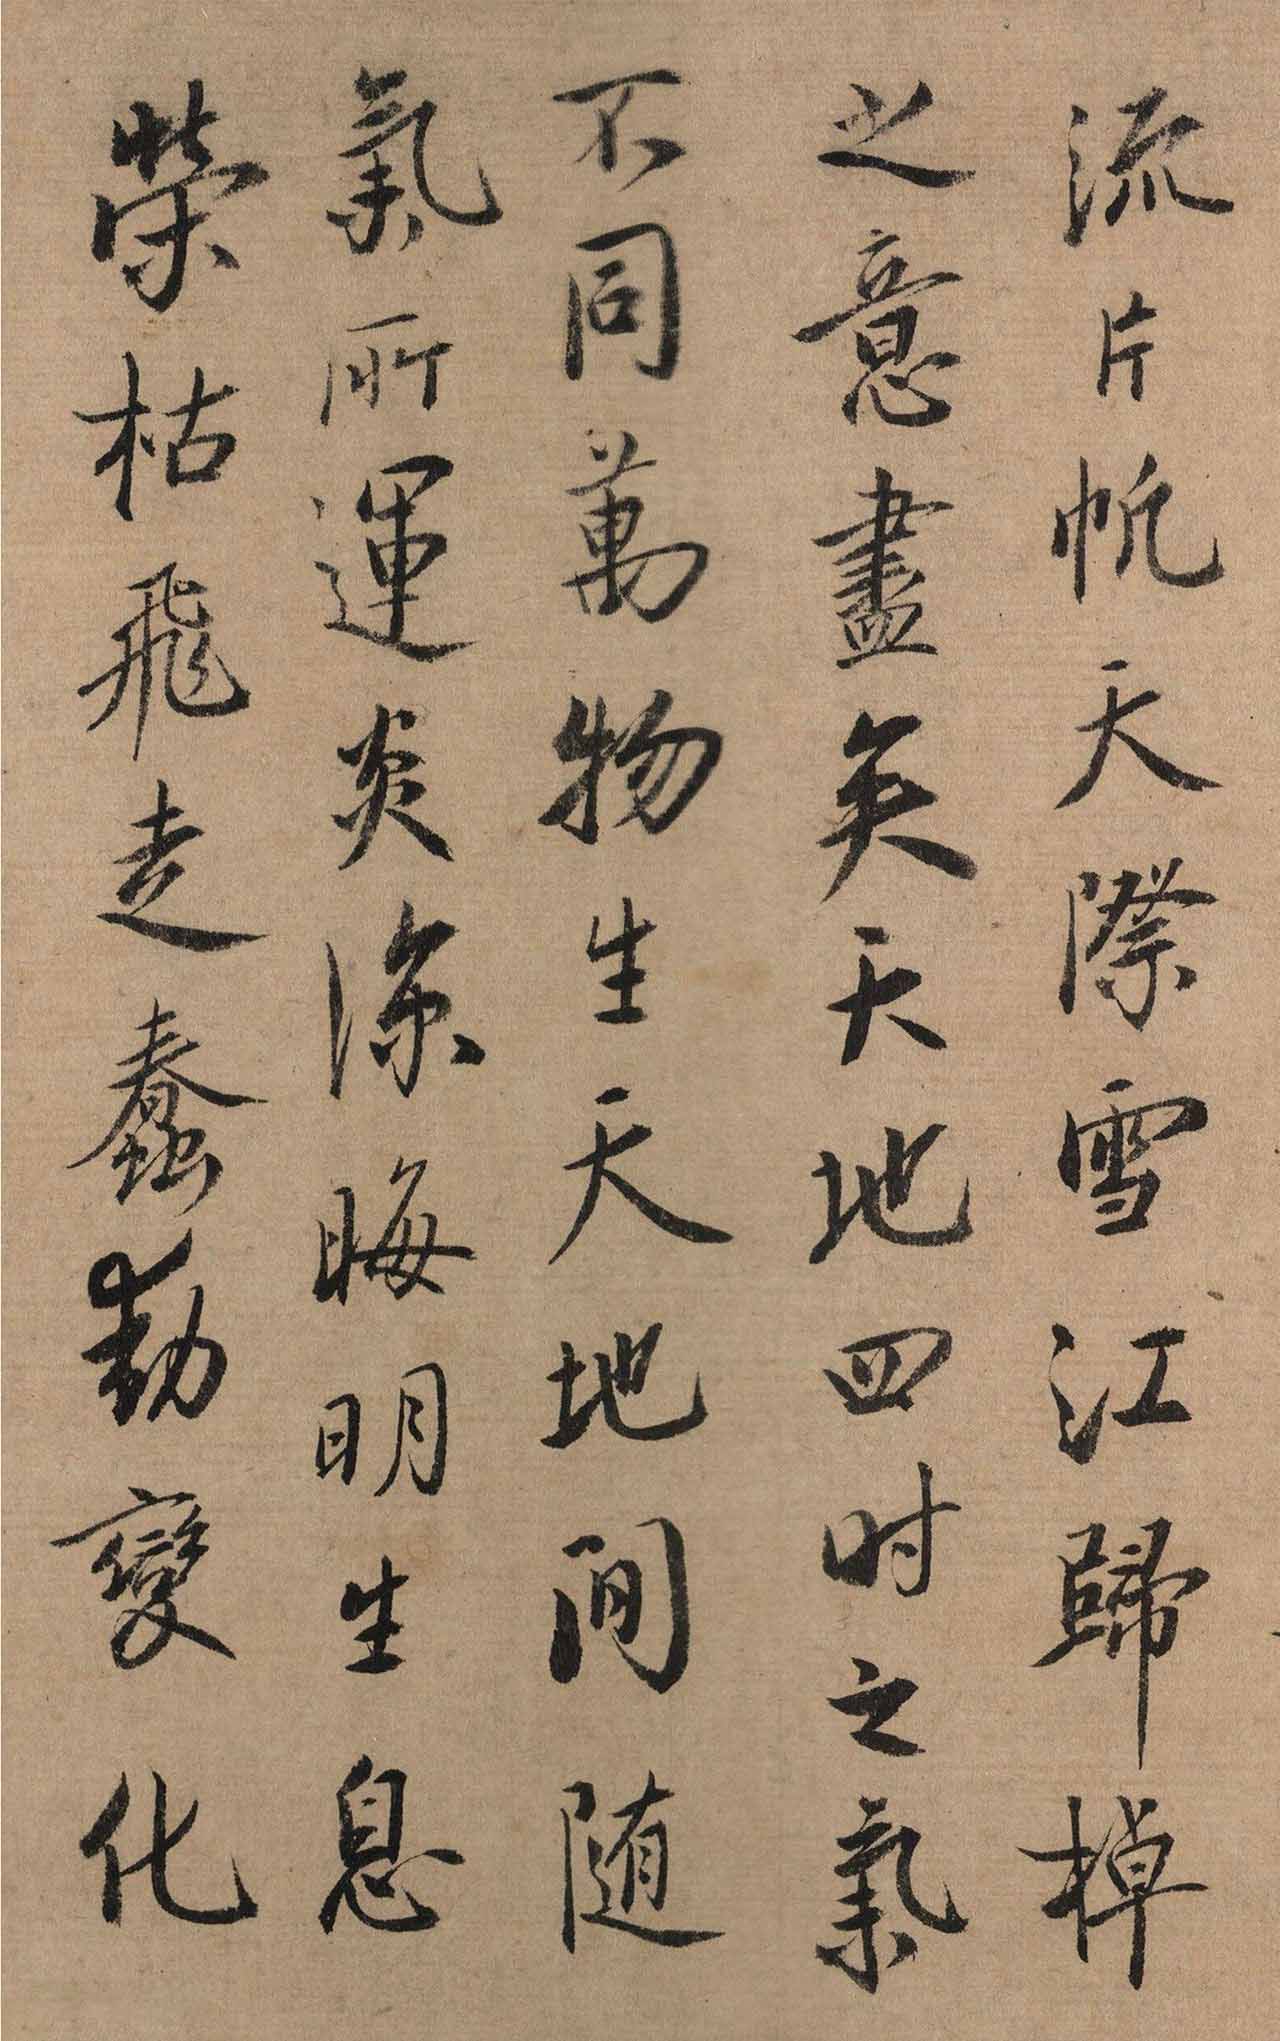 流片帆天際雪江歸棹
之意盡矣天地四时之氣
不同萬物生天地間随
氣所運炎涼晦明生息
榮枯飛走蠢動變化